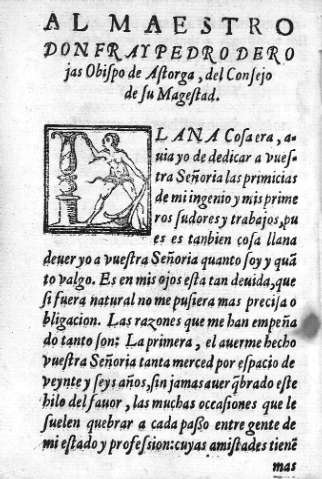 AL MAESTRO
DON FRAY PEDRO DE RO
jas Obispo de Astorga, del Consejo
de su Magestad.
LLANA Cosa era, a-
uia yo de dedicar a vues-
tra Señoria las primicias
de mi ingenio y mis prime
ros sudores y trabajos, pu
es es tanbien cosa llana
deuer yo a vuestra Señoria quanto soy y quã
to valgo. Es en mis ojos esta tan deuida, que
si fuera natural no me pusiera mas precisa o
bligacion. Las razones que me han empeña
do tanto son: La primera, el auerme hecho
vuestra Señoria tanta merced por espacio de
veynte y seys años, sin jamas auer q̃brado este
hilo del fauor, las muchas occasiones que le
suelen quebrar a cada passo entre gente de
mi estado y profession: cuyas amistades tienẽ
mas